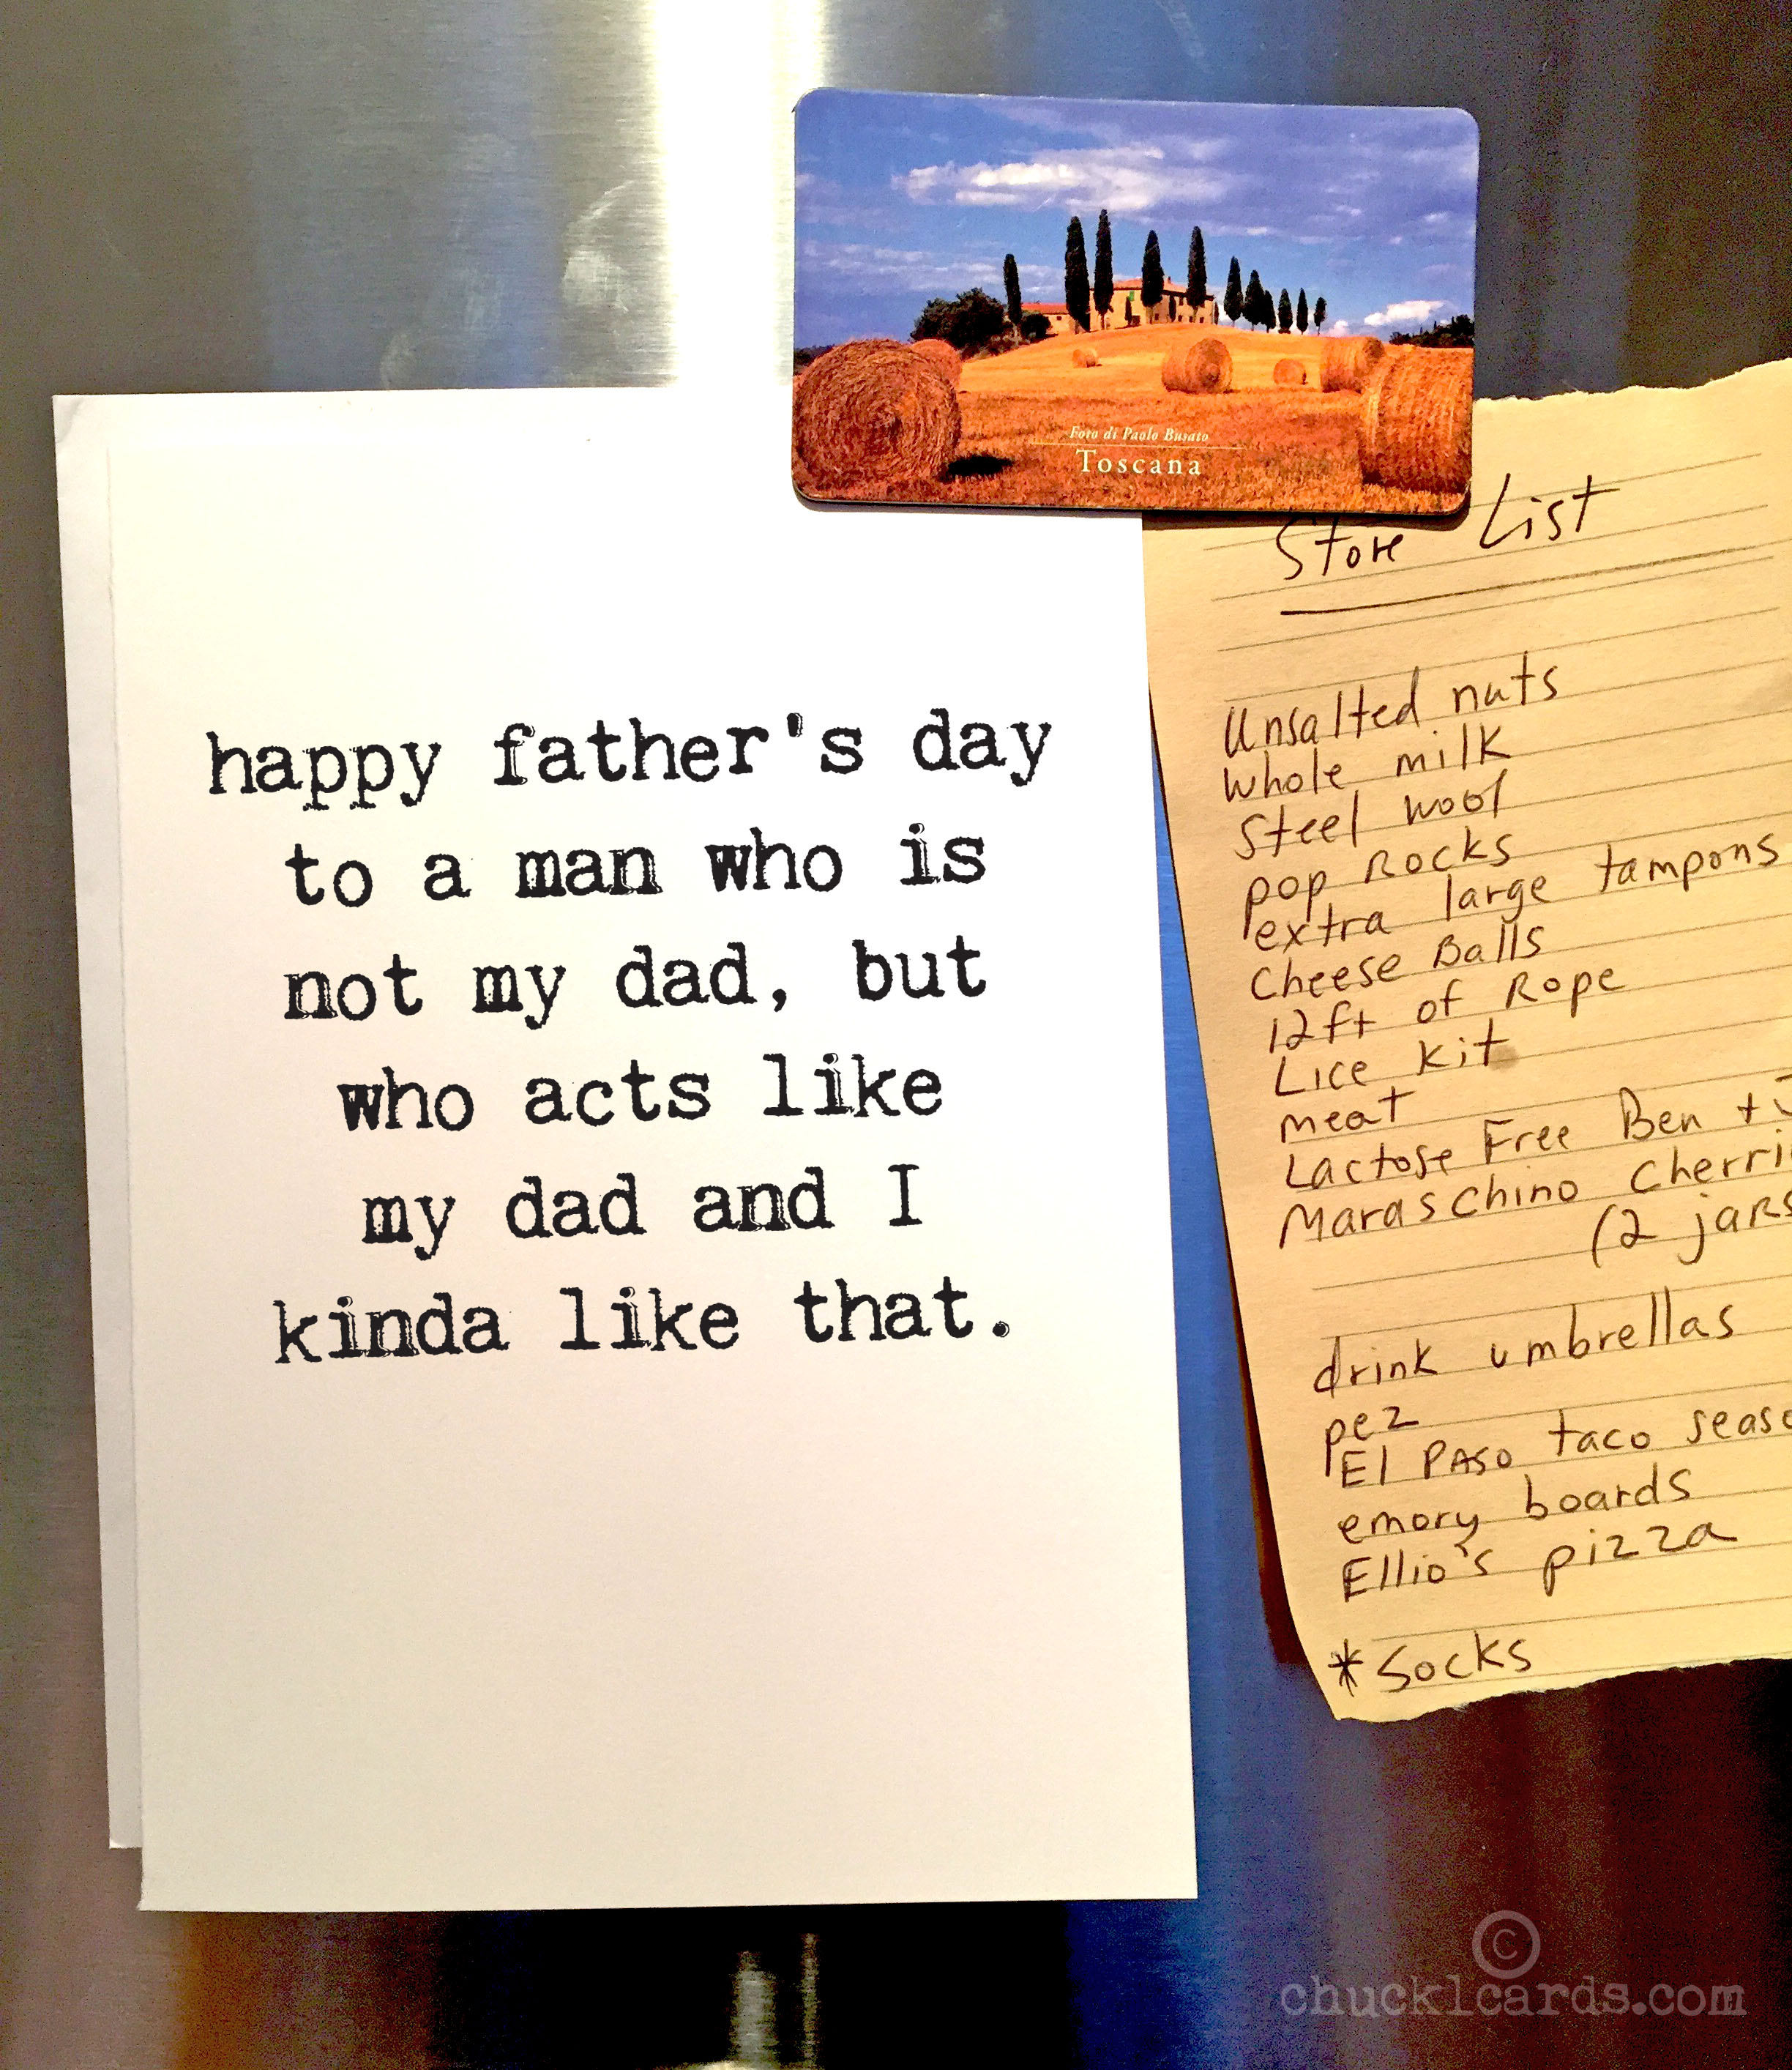 Foto di Paolo Busato
Toscana
happy father's day
to a man who is
not my dad, but
who acts like
my dad and I
kinda like that.
Store List
Unsalted nuts
whole milk
Steel wool
pop Rocks
extra large tampons
Cheese Balls
12ft of Rope
Lice kit
meat
Lactose Free Ben +
Maraschino Cherri
(2 jars
drink umbrellas
pez
El PASO taco seaso
emory boards
Ellio's pizza
* Socks
©
chucklcards.com